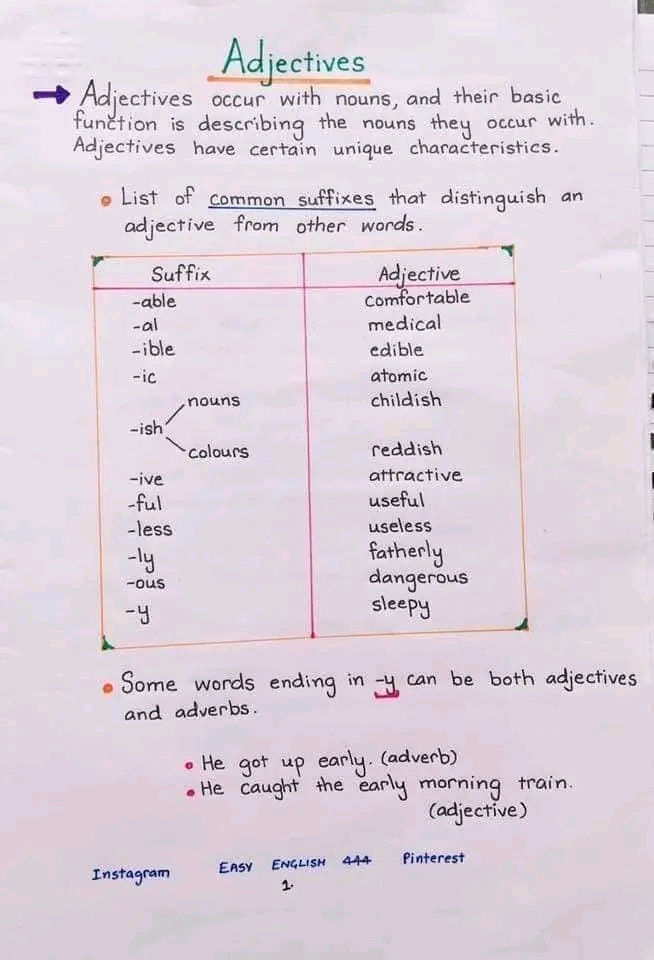 Adjectives
Adjectives occur with nouns, and their basic
function is describing the nouns they occur with.
Adjectives have certain unique characteristics.
List of common suffixes that distinguish an
adjective from other words.
Suffix Adjective
-able comfortable
-al medical
-ible edible
-ic atomic
nouns childish
-ish
colours reddish
-ive attractive
-ful useful
-less useless
-ly fatherly
-ous dangerous
-y sleepy
Some words ending in -y can be both adjectives
and adverbs.
He got up early. (adverb)
He caught the early morning train.
(adjective)
Instagram EASY ENGLISH 444 Pinterest
1.